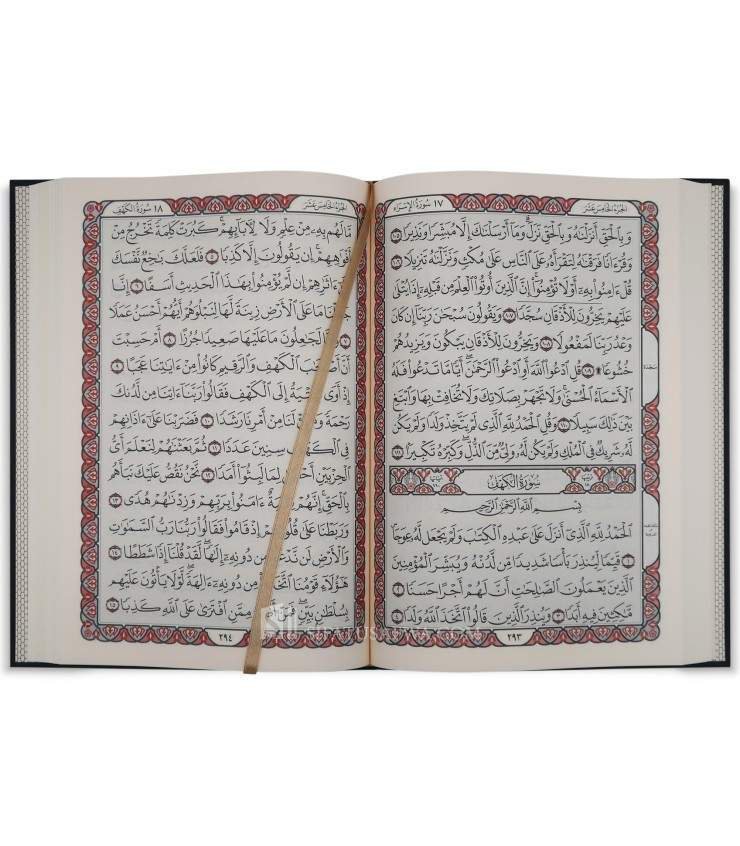 الجزء الخامس عشر
١٧ سورة الإسراء
وَبِالْحَقِّ أَنزَلْنَٰهُ وَبِالْحَقِّ نَزَلَ ۗ وَمَآ أَرْسَلْنَٰكَ إِلَّا مُبَشِّرًا وَنَذِيرًا ١٠٥
وَقُرْءَانًا فَرَقْنَٰهُ لِتَقْرَأَهُۥ عَلَى النَّاسِ عَلَىٰ مُكْثٍ وَنَزَّلْنَٰهُ تَنزِيلًا ١٠٦
قُلْ ءَامِنُوا۟ بِهِۦٓ أَوْ لَا تُؤْمِنُوٓا۟ ۚ إِنَّ الَّذِينَ أُوتُوا۟ الْعِلْمَ مِن قَبْلِهِۦٓ إِذَا يُتْلَىٰ
عَلَيْهِمْ يَخِرُّونَ لِلْأَذْقَانِ سُجَّدًا ١٠٧ وَيَقُولُونَ سُبْحَٰنَ رَبِّنَآ إِن كَانَ
وَعْدُ رَبِّنَا لَمَفْعُولًا ١٠٨ وَيَخِرُّونَ لِلْأَذْقَانِ يَبْكُونَ وَيَزِيدُهُمْ
خُشُوعًا ۩ ١٠٩ قُلِ ادْعُوا۟ اللَّهَ أَوِ ادْعُوا۟ الرَّحْمَٰنَ ۖ أَيًّا مَّا تَدْعُوا۟ فَلَهُ
الْأَسْمَآءُ الْحُسْنَىٰ ۚ وَلَا تَجْهَرْ بِصَلَاتِكَ وَلَا تُخَافِتْ بِهَا وَابْتَغِ
بَيْنَ ذَٰلِكَ سَبِيلًا ١١٠ وَقُلِ الْحَمْدُ لِلَّهِ الَّذِى لَمْ يَتَّخِذْ وَلَدًا وَلَمْ يَكُن
لَّهُۥ شَرِيكٌ فِى الْمُلْكِ وَلَمْ يَكُن لَّهُۥ وَلِىٌّ مِّنَ الذُّلِّ ۖ وَكَبِّرْهُ تَكْبِيرًا ١١١
سُورَةُ الْكَهْفِ
بِسْمِ اللَّهِ الرَّحْمَٰنِ الرَّحِيمِ
الْحَمْدُ لِلَّهِ الَّذِىٓ أَنزَلَ عَلَىٰ عَبْدِهِ الْكِتَٰبَ وَلَمْ يَجْعَل لَّهُۥ عِوَجَا
١ قَيِّمًا لِّيُنذِرَ بَأْسًا شَدِيدًا مِّن لَّدُنْهُ وَيُبَشِّرَ الْمُؤْمِنِينَ
الَّذِينَ يَعْمَلُونَ الصَّٰلِحَٰتِ أَنَّ لَهُمْ أَجْرًا حَسَنًا ٢
مَّٰكِثِينَ فِيهِ أَبَدًا ٣ وَيُنذِرَ الَّذِينَ قَالُوا۟ اتَّخَذَ اللَّهُ وَلَدًا ٤
٢٩٣
الجزء الخامس عشر
١٨ سورة الكهف
مَّا لَهُم بِهِۦ مِنْ عِلْمٍ وَلَا لِءَابَآئِهِمْ ۚ كَبُرَتْ كَلِمَةً تَخْرُجُ مِنْ
أَفْوَٰهِهِمْ ۚ إِن يَقُولُونَ إِلَّا كَذِبًا ٥ فَلَعَلَّكَ بَٰخِعٌ نَّفْسَكَ
ءَاثَٰرِهِمْ إِن لَّمْ يُؤْمِنُوا۟ بِهَٰذَا الْحَدِيثِ أَسَفًا ٦ إِنَّا
جَعَلْنَا مَا عَلَى الْأَرْضِ زِينَةً لَّهَا لِنَبْلُوَهُمْ أَيُّهُمْ أَحْسَنُ عَمَلًا
لَجَٰعِلُونَ مَا عَلَيْهَا صَعِيدًا جُرُزًا ٨ أَمْ حَسِبْتَ
أَنَّ أَصْحَٰبَ الْكَهْفِ وَالرَّقِيمِ كَانُوا۟ مِنْ ءَايَٰتِنَا عَجَبًا ٩
إِذْ أَوَى إِلَى الْكَهْفِ فَقَالُوا۟ رَبَّنَآ ءَاتِنَا مِن لَّدُنكَ
رَحْمَةً لَنَا مِنْ أَمْرِنَا رَشَدًا ١٠ فَضَرَبْنَا عَلَىٰٓ ءَاذَانِهِمْ
فِى الْكَهْفِ سِنِينَ عَدَدًا ١١ ثُمَّ بَعَثْنَٰهُمْ لِنَعْلَمَ أَىُّ
الْحِزْبَيْنِ لِمَا لَبِثُوٓا۟ أَمَدًا ١٢ نَّحْنُ نَقُصُّ عَلَيْكَ نَبَأَهُم
بِالْحَقِّ ۚ إِنَّهُمْ ءَامَنُوا۟ بِرَبِّهِمْ وَزِدْنَٰهُمْ هُدًى ١٣
وَرَبَطْنَا عَلَىٰ قُلُوبِهِمْ إِذْ قَامُوا۟ فَقَالُوا۟ رَبُّنَا رَبُّ السَّمَٰوَٰتِ
وَالْأَرْضِ لَن نَّدْعُوَا۟ مِن دُونِهِۦٓ إِلَٰهًا ۖ لَّقَدْ قُلْنَآ إِذًا شَطَطًا ١٤
هَٰٓؤُلَآءِ قَوْمُنَا اتَّخَذُوا۟ مِن دُونِهِۦٓ ءَالِهَةً ۖ لَّوْلَا يَأْتُونَ عَلَيْهِم
بِسُلْطَٰنٍۭ بَيِّنٍ ۖ مِمَّنِ افْتَرَىٰ عَلَى اللَّهِ كَذِبًا ١٥
٢٩٤